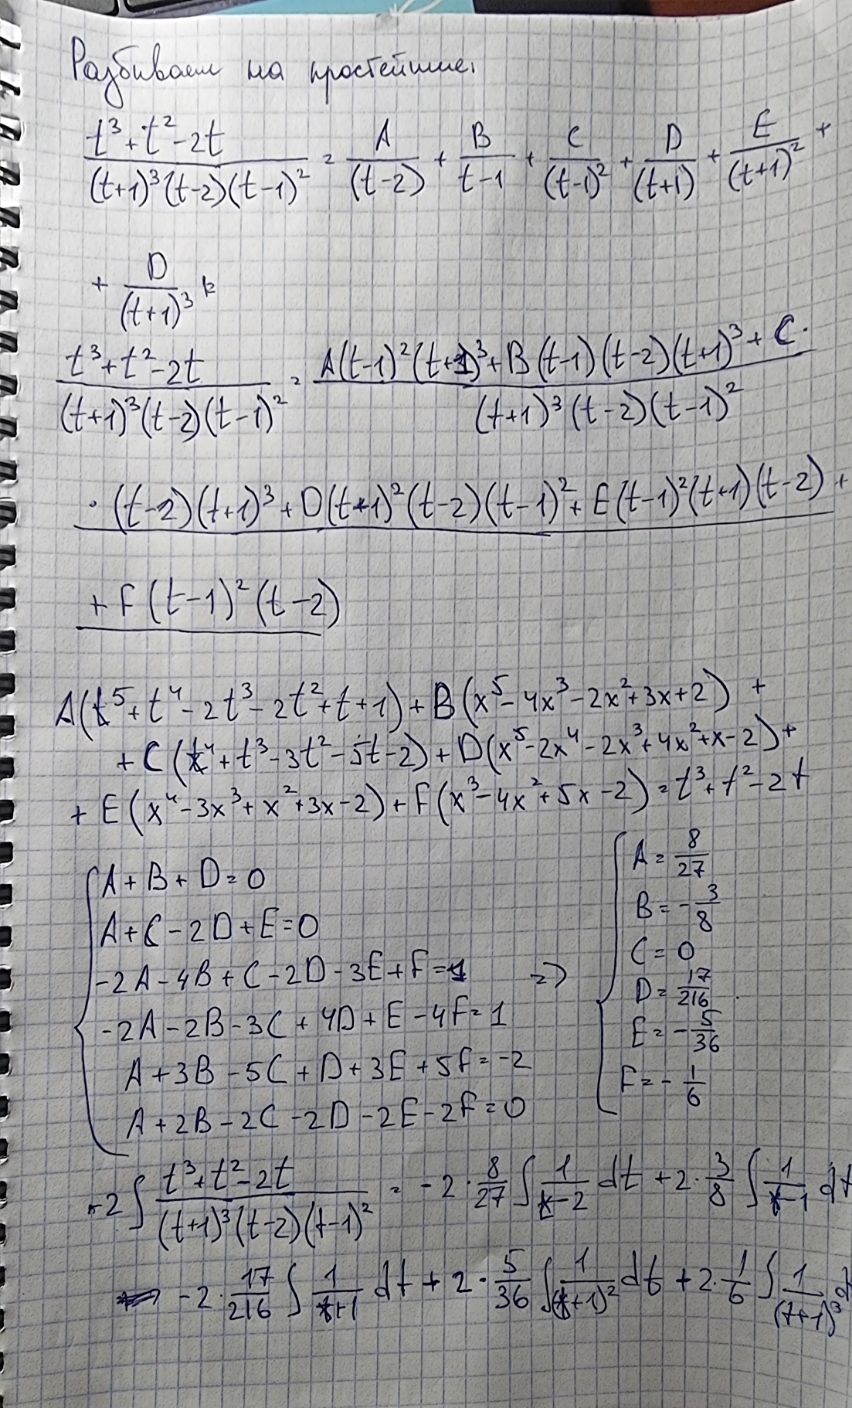 Разбиваем на простейшие.
\frac{t^3+t^2-2t}{(t+1)^3(t-2)(t-1)^2} = \frac{A}{(t-2)} + \frac{B}{t-1} + \frac{C}{(t-1)^2} + \frac{D}{(t+1)} + \frac{E}{(t+1)^2} +
+ \frac{D}{(t+1)^3}
\frac{t^3+t^2-2t}{(t+1)^3(t-2)(t-1)^2} = \frac{A(t-1)^2(t+1)^3+B(t-1)(t-2)(t+1)^3+C·}{(t+1)^3(t-2)(t-1)^2}
·(t-2)(t+1)^3+D(t+1)^2(t-2)(t-1)^2+E(t-1)^2(t+1)(t-2)+
+F(t-1)^2(t-2)
A(t^5+t^4-2t^3-2t^2+t+1)+B(x^5-4x^3-2x^2+3x+2)+
+C(t^4+t^3-3t^2-5t-2)+D(x^5-2x^4-2x^3+4x^2+x-2)+
+E(x^4-3x^3+x^2+3x-2)+F(x^3-4x^2+5x-2)=t^3+t^2-2t
A+B+D=0
A+C-2D+E=0
-2A-4B+C-2D-3E+F=1 =>
-2A-2B-3C+4D+E-4F=1
A+3B-5C+D+3E+5F=-2
A+2B-2C-2D-2E-2F=0
A=\frac{8}{27}
B=-\frac{3}{8}
C=0
D=\frac{17}{216}
E=-\frac{5}{36}
F=-\frac{1}{6}
-2∫\frac{t^3+t^2-2t}{(t+1)^3(t-2)(t-1)^2} = -2·\frac{8}{27}∫\frac{1}{t-2}dt+2·\frac{3}{8}∫\frac{1}{t-1}dt
-2·\frac{17}{216}∫\frac{1}{t+1}dt+2·\frac{5}{36}∫\frac{1}{(t+1)^2}dt+2·\frac{1}{6}∫\frac{1}{(t+1)^3}d